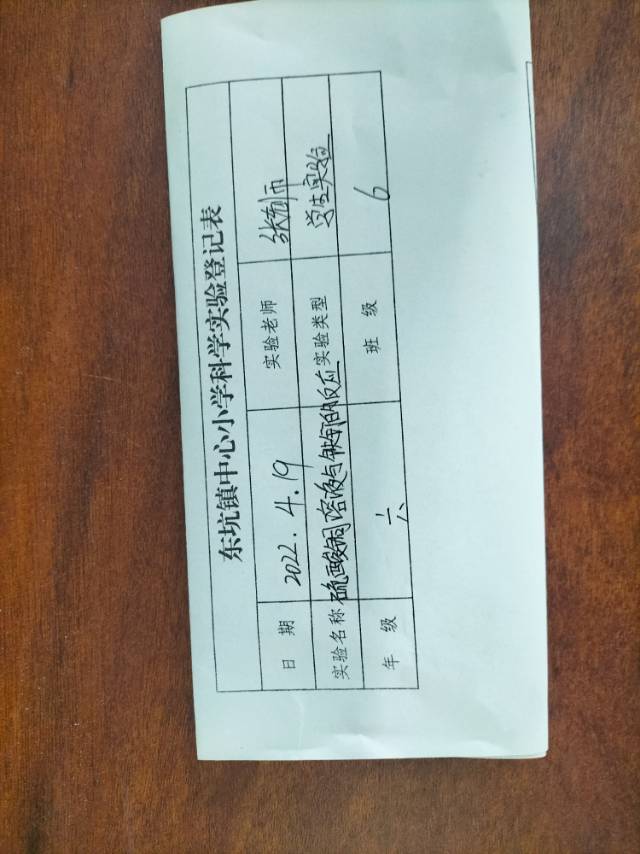 东坑镇中心小学科学实验登记表
日 期 2022.4.19 实验老师
实验名称 硫酸铜溶液与铁钉的反应 实验类型 学生实验
年 级 六 班 级 6